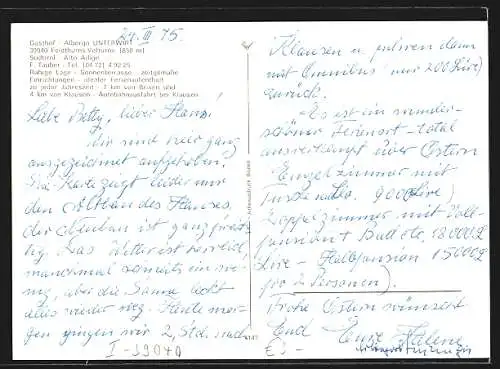 Gasthof - Albergo UNTERWIRT
39040 Feldthurns-Velturno (850 m)
Südtirol - Alto Adige
F. Tauber - Tel. (0472) 4 92 25
Ruhige Lage - Sonnenterrasse - zeitgemäße
Einrichtungen - idealer Ferienaufenthalt
zu jeder Jahreszeit - 7 km von Brixen und
4 km von Klausen - Autobahnausfahrt bei Klausen
24. III 75
Liebe Betty, lieber Hansi!
Wir sind hier ganz
ausgezeichnet aufgehoben.
Die Karte zeigt leider nur
den Altbau des Hauses,
der Neubau ist ganz
Das Wetter ist herrlich,
manchmal schneits ein we-
nig, aber die Sonne leckt
alles wieder weg. Heute mor-
gen gingen wir 2 Std. nach
Klausen u. fuhren dann
mit Omnibus (nur 200 Lire)
zurück.
Es ist ein wunder-
schöner Ferienort - total
ausverkauft über Ostern
Einzelzimmer mit
Frühstück 9000 Lire)
Doppelzimmer mit Voll-
pension + Bad etc. 18000.-
Lire - Halbpension 15000.-
für 2 Personen).
Frohe Ostern wünscht
Euch Eure Helene
I-39040
€3-